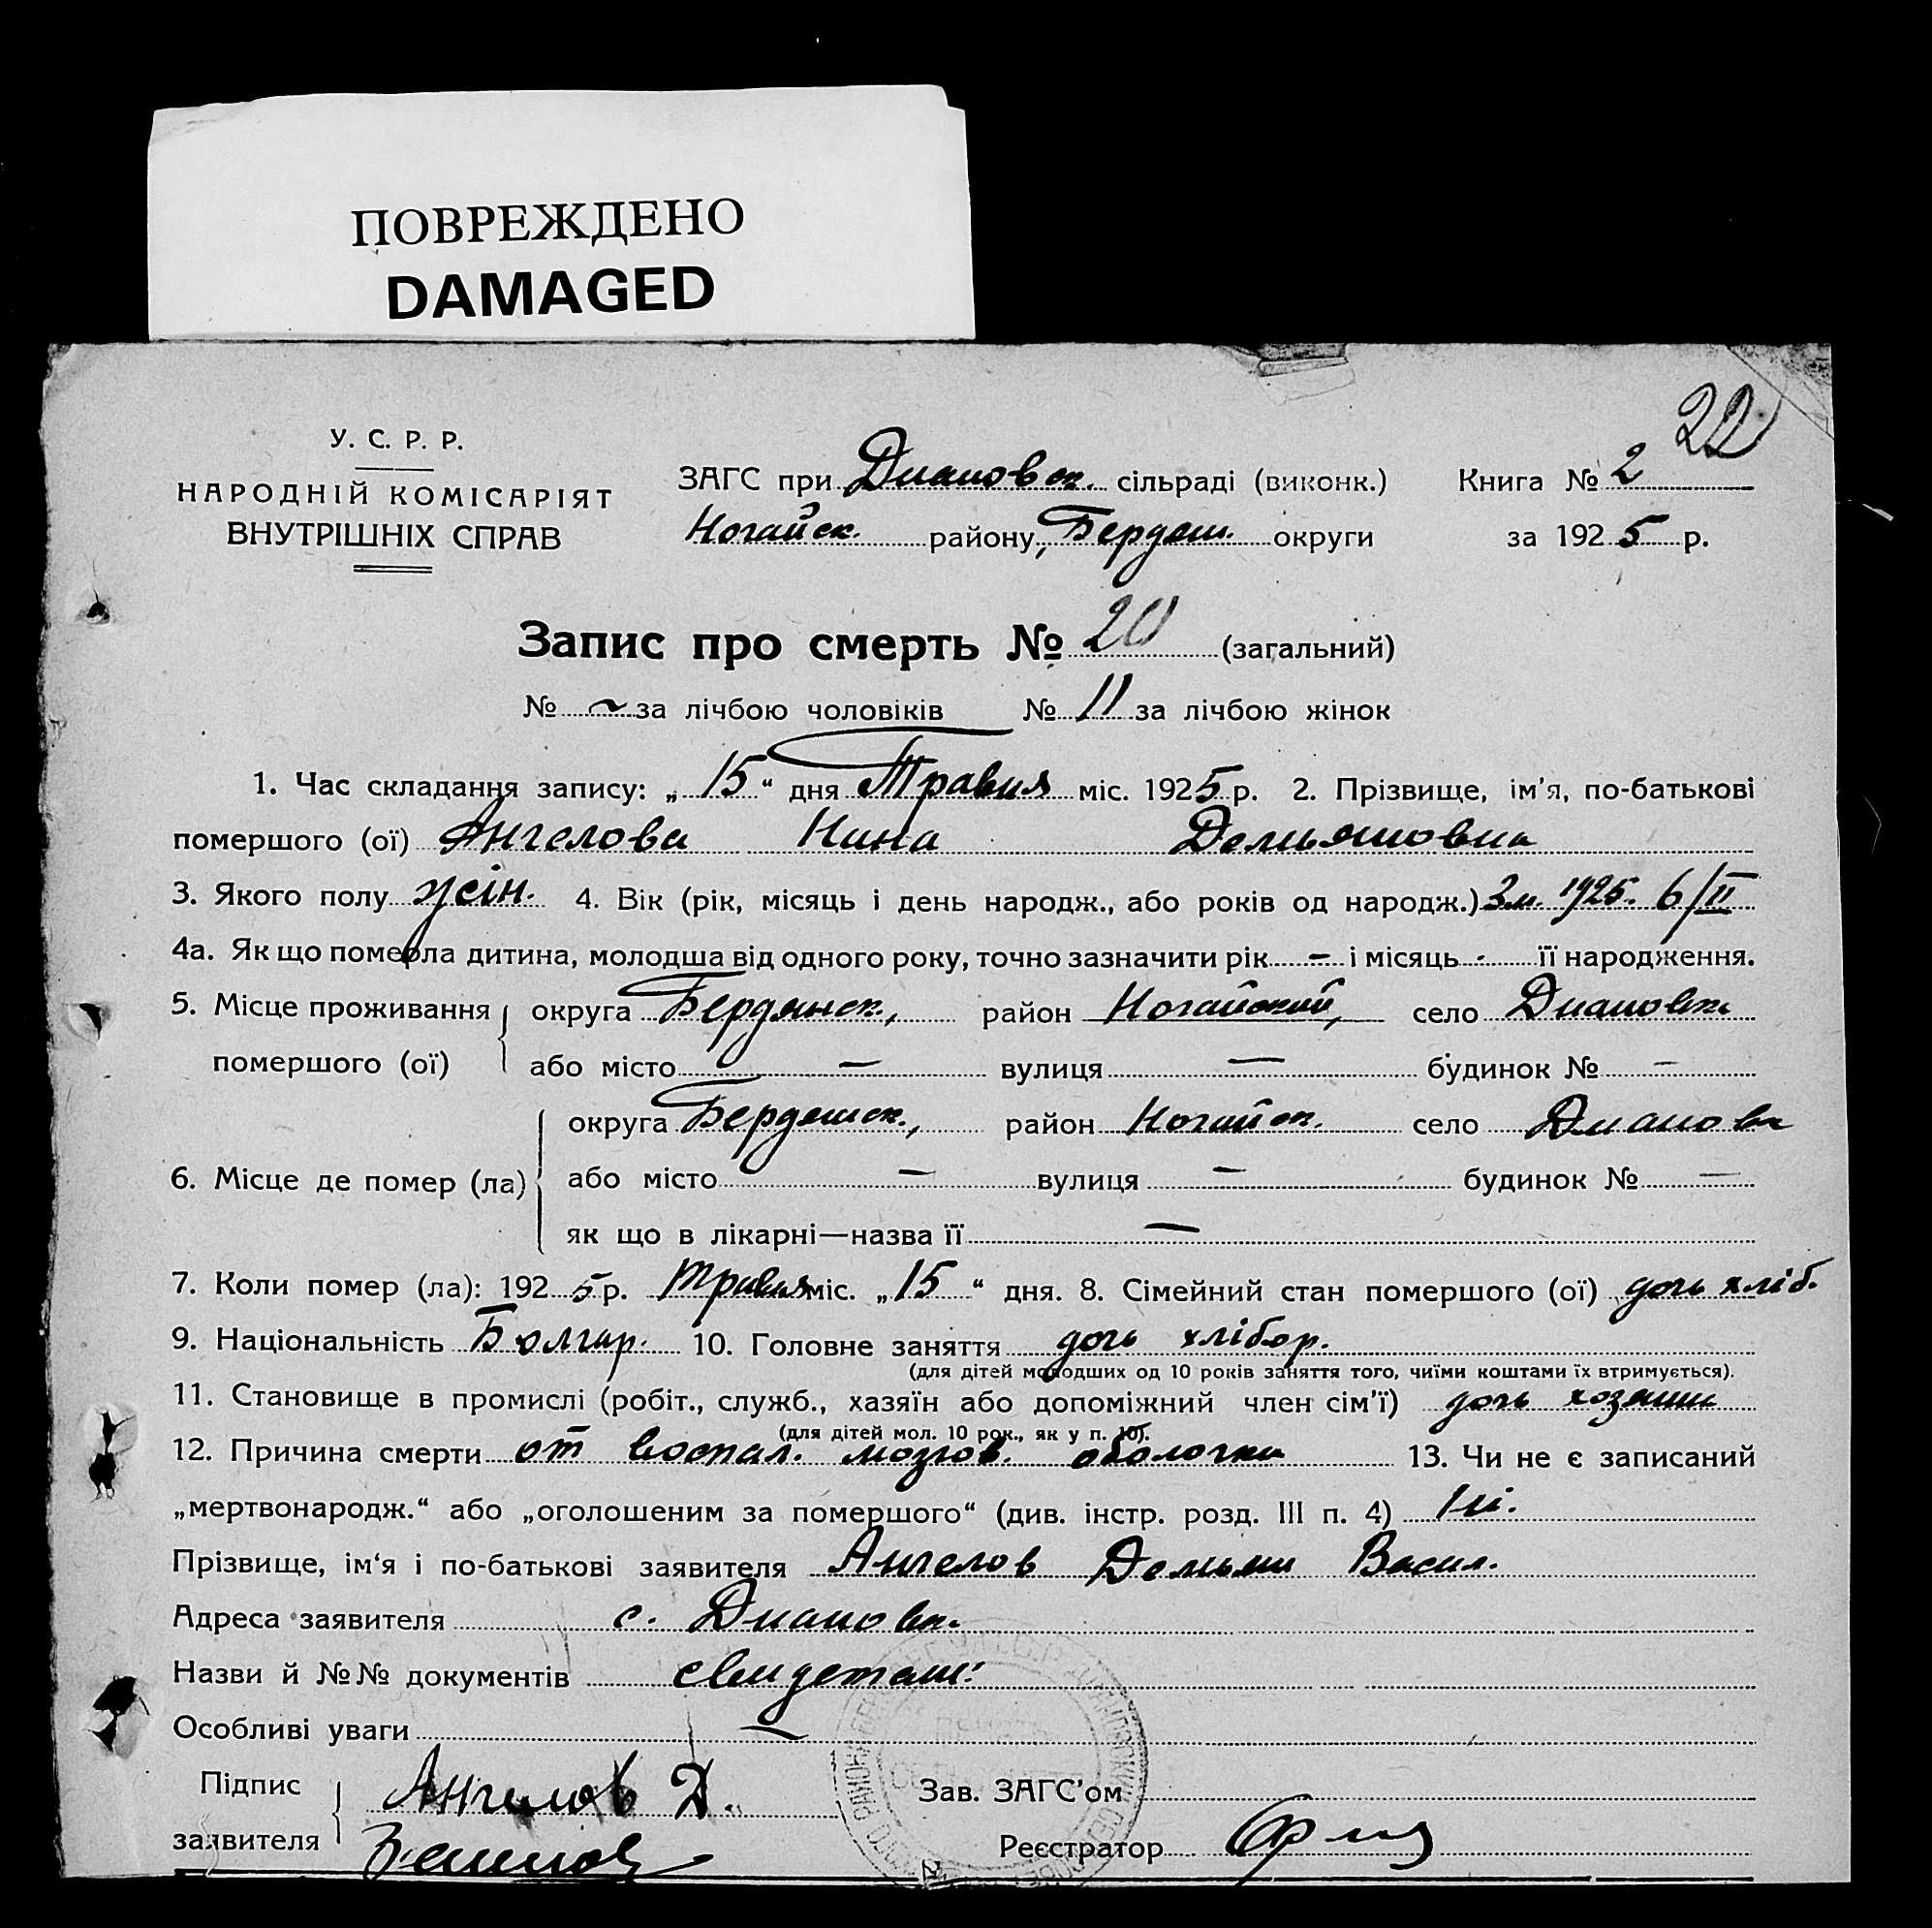 ПОВРЕЖДЕНО
DAMAGED
22
У. С. Р. Р.
НАРОДНІЙ КОМІСАРІЯТ
ВНУТРІШНІХ СПРАВ
ЗАГС при Диановск. сільраді (виконк.) Книга № 2
Ногайск. району, Бердян. округи за 1925 р.
Запис про смерть № 20 (загальний)
№ ~ за лічбою чоловіків № 11 за лічбою жінок
1. Час складання запису: „ 15 “ дня Травня міс. 1925 р. 2. Прізвище, ім’я, по-батькові
помершого (ої) Ангелова Нина Демьяновна
3. Якого полу жін. 4. Вік (рік, місяць і день народж., або років од народж.) 3 м. 1925. 6/II
4а. Як що померла дитина, молодша від одного року, точно зазначити рік – і місяць - її народження.
5. Місце проживання округа Бердянск., район Ногайский, село Диановка
помершого (ої) або місто — вулиця — будинок № —
округа Бердянск., район Ногайск. село Диановк
6. Місце де помер (ла) або місто — вулиця — будинок № —
як що в лікарні—назва її —
7. Коли помер (ла): 1925 р. травня міс. „ 15 “ дня. 8. Сімейний стан помершого (ої) дочь хліб.
9. Національність Болгар. 10. Головне заняття дочь хлібор.
(для дітей молодших од 10 років заняття того, чиїми коштами їх втримується).
11. Становище в промислі (робіт., служб., хазяїн або допоміжний член сім’ї) дочь хозяина
(для дітей мол. 10 рок., як у п. 10).
12. Причина смерти от воспал. мозгов. оболочки 13. Чи не є записаний
„мертвонародж.“ або „оголошеним за помершого“ (див. інстр. розд. III п. 4) Ні.
Прізвище, ім‘я і по-батькові заявителя Ангелов Демьян Васил.
Адреса заявителя с. Диановк.
Назви й №№ документів
Особливі уваги —
Підпис Ангелов Д. Зав. ЗАГС’ом
заявителя Реєстратор